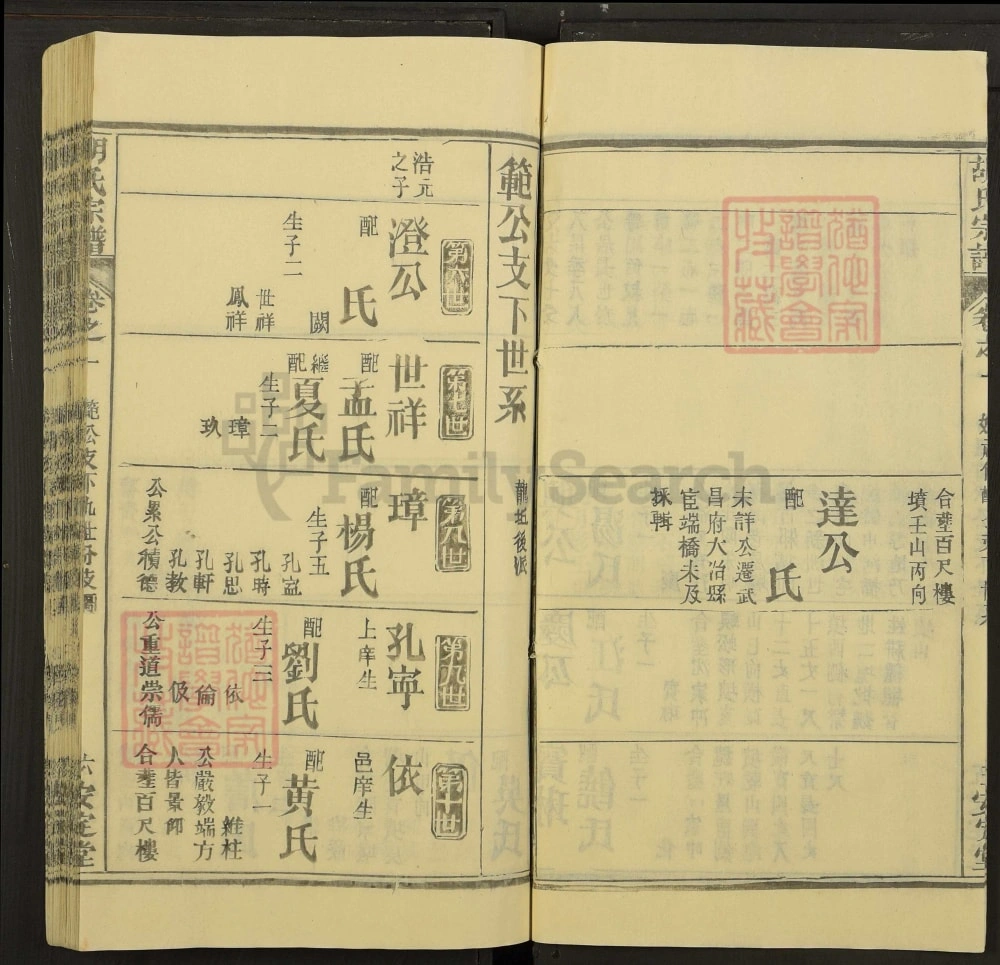 胡氏宗譜
合塟百尺樓
墳壬山丙向
達公
配
氏
未詳公遷武
昌府大冶縣
宦端橋未及
採輯
範公支下世系
龍坵後派
浩元
之子
第六世
澄公
配
氏
闕
生子二
世祥
鳳祥
世祥
配
孟氏
繼
配
夏氏
生子二
璋
玖
璋
配
楊氏
生子五
孔寍
孔時
孔思
孔軒
孔教
公累公積德
第九世
孔寍
上庠生
配
劉氏
生子三
依
倫
伋
公重道崇儒
第十世
依
邑庠生
配
黄氏
生子一
維柱
公嚴毅端方
人皆景仰
合塟百尺樓
胡氏宗譜
卷之一
六
安定堂
FamilySearch